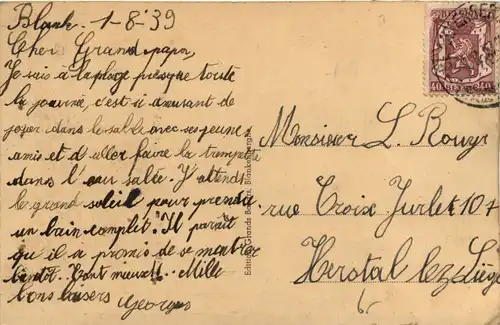 Blank. 1-8-39
Cher Grand papa,
Je suis à la plage presque toute
la journée, c'est si amusant de
jouer dans le sable avec ses jeunes
amis et d'aller faire la trempette
dans l'eau salée. J'attends
le grand soleil pour prendre
un bain complet. Il paraît
qu'il a promis de se montrer
bientôt. Mille
bons baisers
Georges
Monsieur L. Rouyr
rue Croix Jurlet 107
Herstal lez Liége
40 40